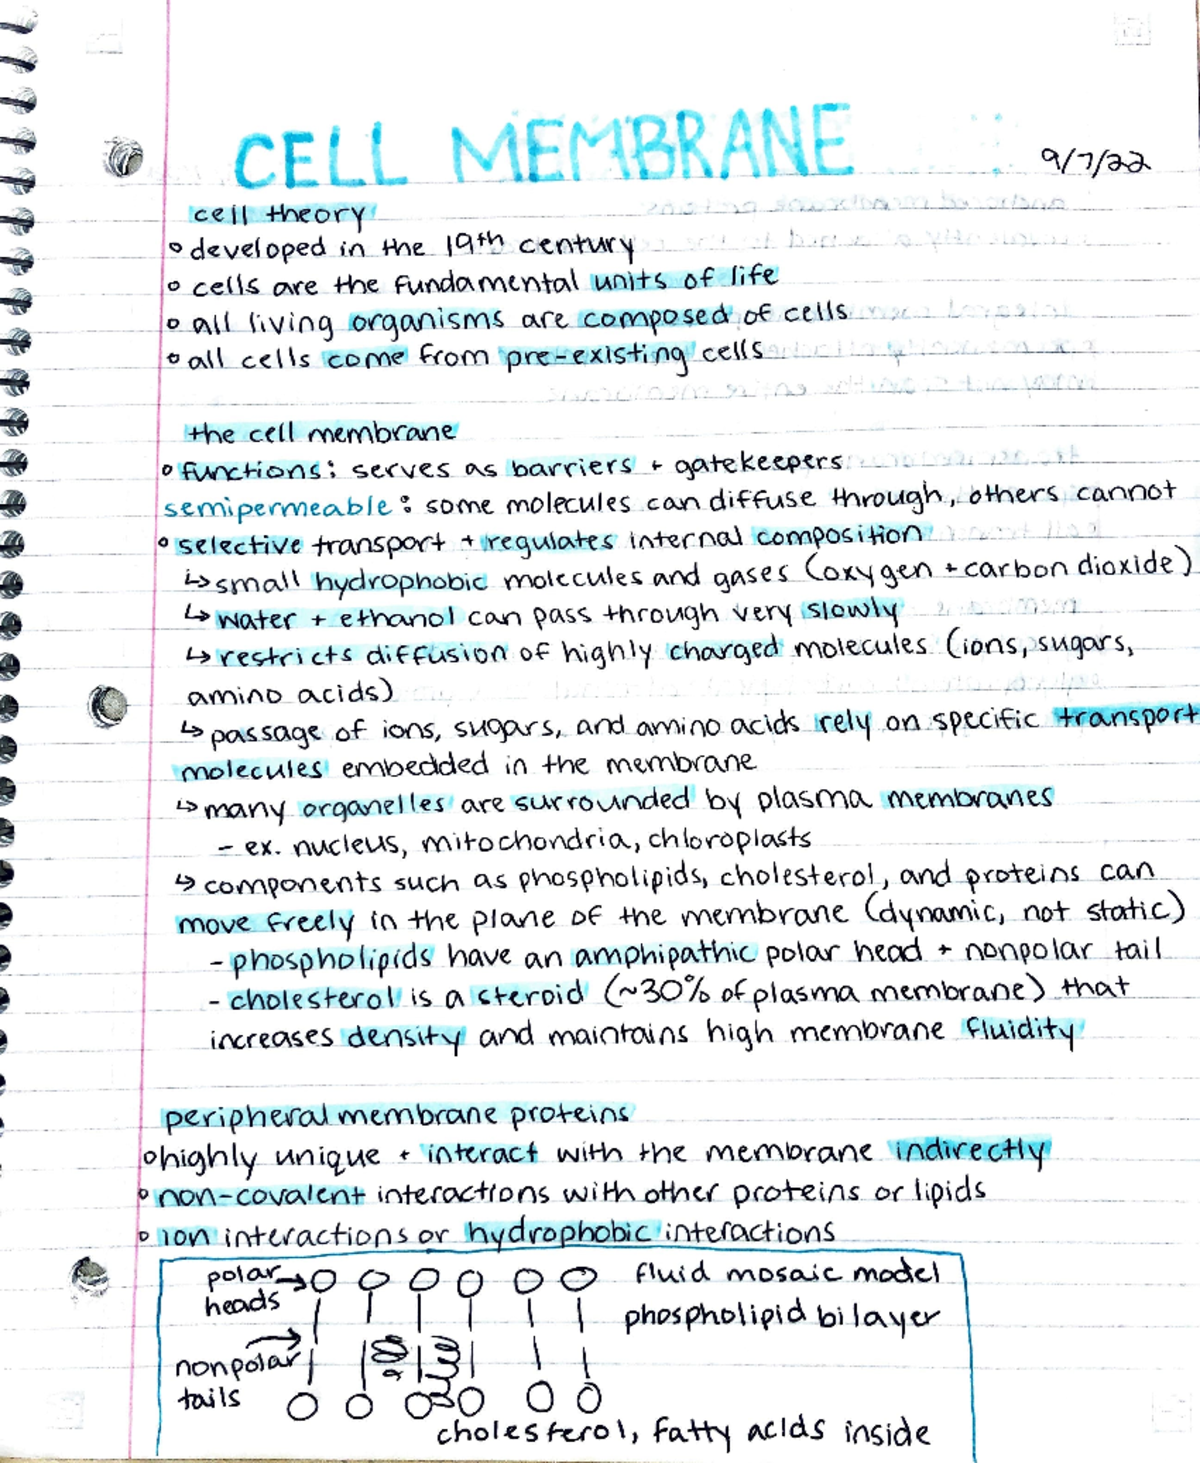 CELL MEMBRANE
9/7/22
cell theory
° developed in the 19th century
° cells are the fundamental units of life
° all living organisms are composed of cells
° all cells come from pre-existing cells
the cell membrane
° functions: serves as barriers + gatekeepers
semipermeable: some molecules can diffuse through, others cannot
° selective transport + regulates internal composition
↳ small hydrophobic molecules and gases (oxygen + carbon dioxide)
↳ water + ethanol can pass through very slowly
↳ restricts diffusion of highly charged molecules (ions, sugars,
amino acids)
↳ passage of ions, sugars, and amino acids rely on specific transport
molecules embedded in the membrane
↳ many organelles are surrounded by plasma membranes
- ex. nucleus, mitochondria, chloroplasts
↳ components such as phospholipids, cholesterol, and proteins can
move freely in the plane of the membrane (dynamic, not static)
- phospholipids have an amphipathic polar head + nonpolar tail
- cholesterol is a steroid (~30% of plasma membrane) that
increases density and maintains high membrane fluidity
peripheral membrane proteins
° highly unique + interact with the membrane indirectly
° non-covalent interactions with other proteins or lipids
° ion interactions or hydrophobic interactions
polar
heads
fluid mosaic model
phospholipid bilayer
nonpolar
tails
cholesterol, fatty acids inside